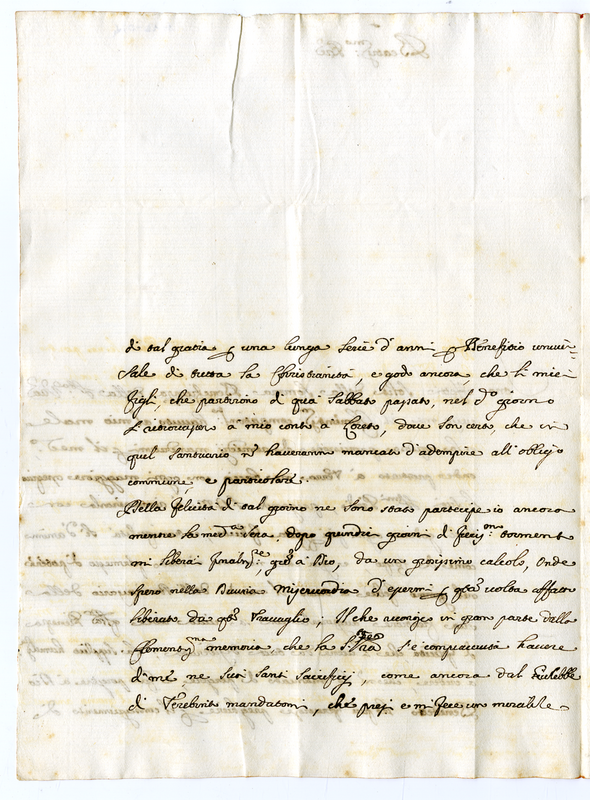 di tal gratia p una lunga serie d'anni p Benefitio univer=
sale di tutta la Christianità, e godo ancora, che li miei
Figli, che partirono di quà Sabbato passato, nel dº giorno
si ritrovassero a mio conto a Loreto, dove son certo, che in
quel Santuario nº haveranno mancato d'adempire all'obligo
commune, e particolare.
Della felicità di tal giorno ne sono stato partecipe io ancora
mentre la medª sera, dopo quindici giorni di fierissmo tormento
mi liberai finalmte, gratie a Dio, da un grossissimo calcolo, onde
spero nella Divina Misericordia d'essermi p questa volta affatto
liberato da questo travaglio, Il che riconosco in gran parte dalla
Clementissma memoria, che la Stà Vra s'è compiaciuta havere
di me ne suoi Santi Sacrificij, come ancora dal
di Terebinto mandatomi, che presi e mi fece un mirabile